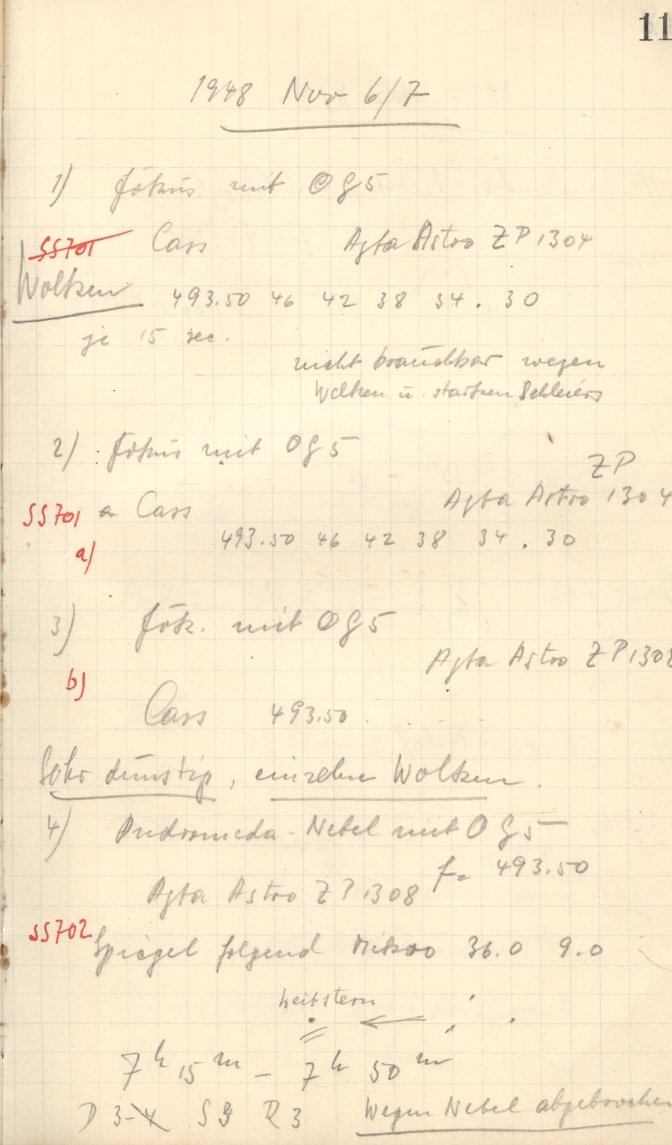 11
1948 Nov 6/7
1) Fokus mit OG5
SS701 Cass Agfa Astro ZP 1304
Wolken 493.50 46 42 38 34 . 30
je 15 sec.
nicht brauchbar wegen
Wolken u. starken Schleiers
2) Fokus mit OG5
ZP
SS701 Cass Agfa Astro 1304
a) 493.50 46 42 38 34 . 30
3) Fok. mit OG5
Agfa Astro ZP 1308
b)
Cass 493.50
Sehr dunstig, einzelne Wolken.
4) Andromeda-Nebel mit OG5
f= 493.50
Agfa Astro ZP 1308
SS702 Spiegel folgend Mikro 36.0 9.0
Leitstern
7h 15m – 7h 50m
D 3-4 S R 3 Wegen Nebel abgebrochen